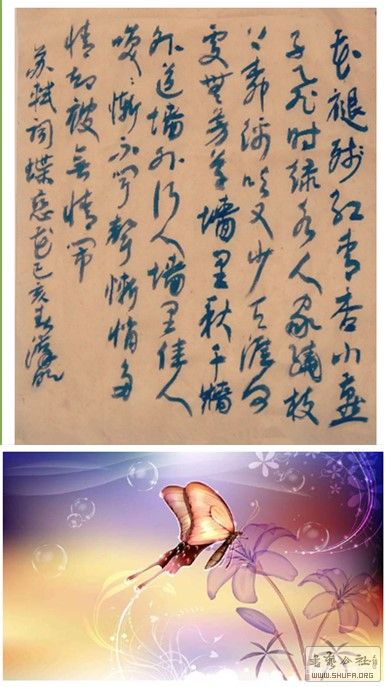 花褪残红青杏小燕
子飞时绿水人家绕枝
上柳绵吹又少天涯何
处無芳草墙里秋千墙
外道墙外行人墙里佳人
笑笑渐不闻声渐悄多
情却被無情恼
苏轼词蝶恋花己亥春
书艺公社
WWW.SHUFA.ORG